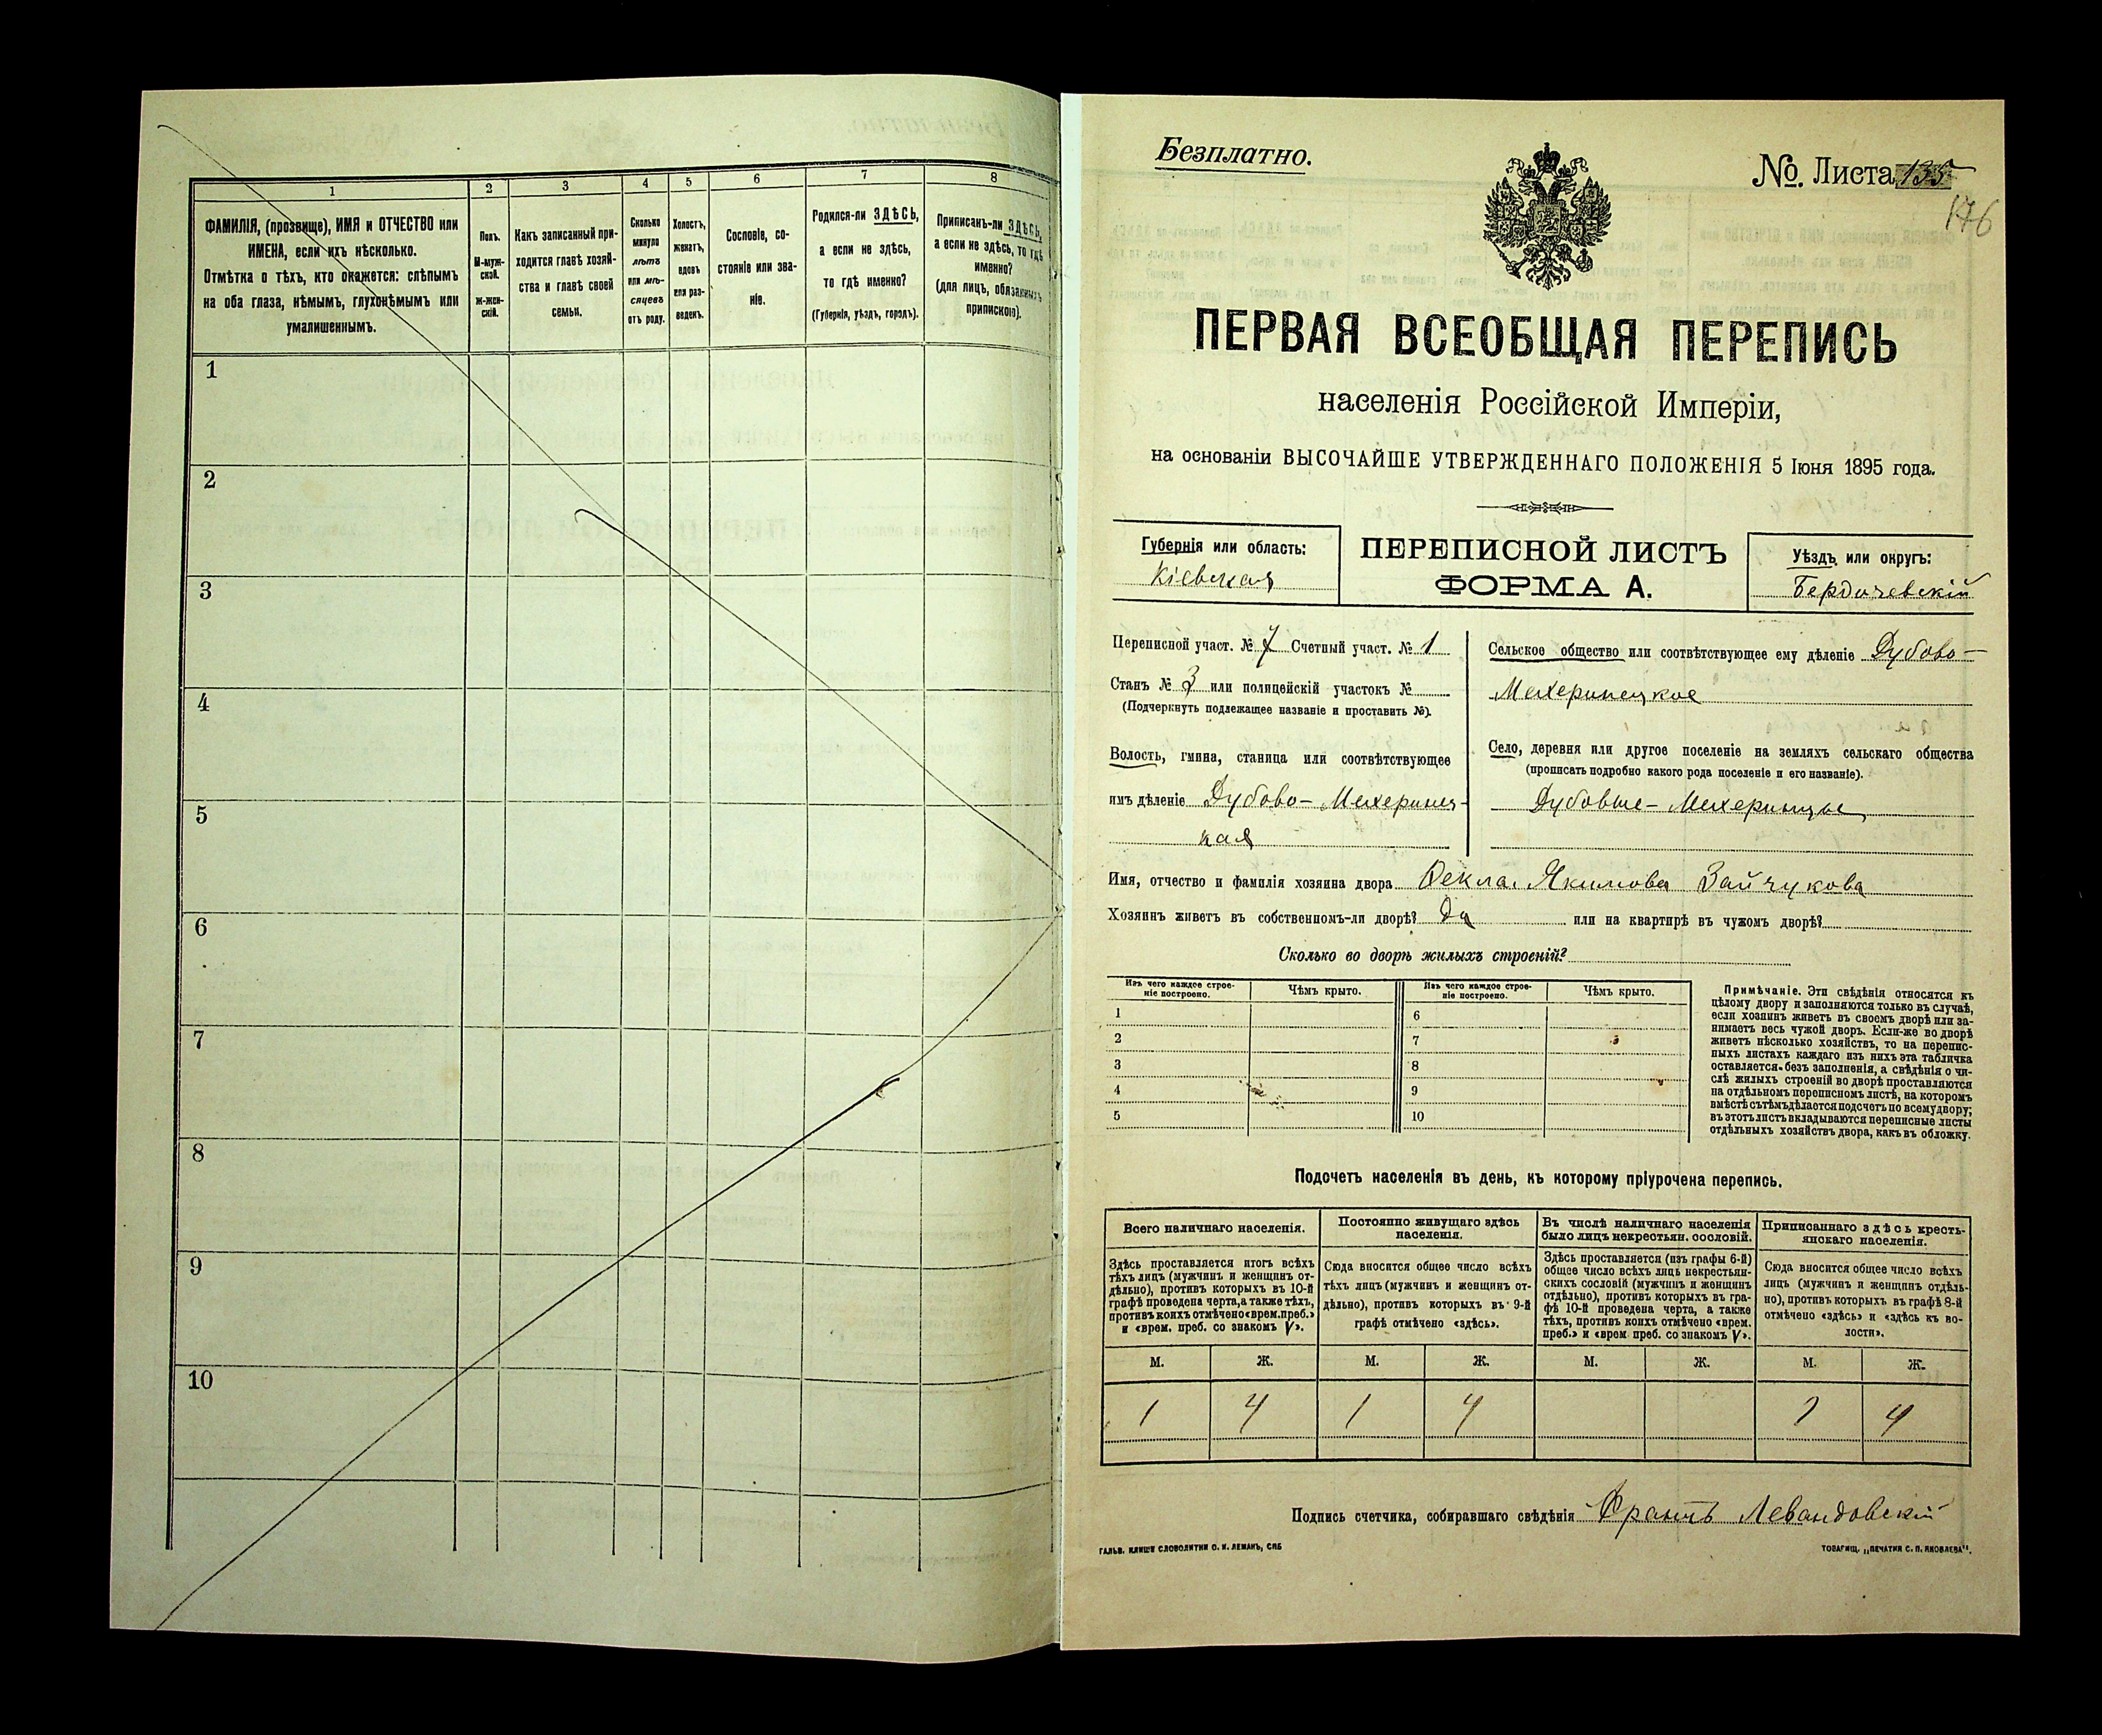 1
2
3
4
5
6
7
8
ФАМИЛІЯ, (прозвище), ИМЯ и ОТЧЕСТВО или
ИМЕНА, если ихъ нѣсколько.
Отмѣтка о тѣхъ, кто окажется: слѣпымъ
на оба глаза, нѣмымъ, глухонѣмымъ или
умалишеннымъ.
Полъ.
М-муж-
ской.
ж-жен-
скій.
Какъ записанный при-
ходится главѣ хозяй-
ства и главѣ своей
семьи.
Сколько
минуло
лѣтъ
или мѣ-
сяцевъ
отъ роду.
Холостъ,
женатъ,
вдовъ
или раз-
веденъ.
Сословіе, со-
стояніе или зва-
ніе.
Родился-ли ЗДѢСЬ,
а если не здѣсь,
то гдѣ именно?
(Губернія, уѣздъ, городъ).
Приписанъ-ли ЗДѢСЬ,
а если не здѣсь, то гдѣ
именно?
(для лицъ, обязанныхъ
припискою).
1
2
3
4
5
6
7
8
9
10
Безплатно.
№. Листа 135
176
ПЕРВАЯ ВСЕОБЩАЯ ПЕРЕПИСЬ
населенія Россійской Имперіи,
на основаніи ВЫСОЧАЙШЕ УТВЕРЖДЕННАГО ПОЛОЖЕНІЯ 5 Іюня 1895 года.
Губернія или область:
Кіевская
ПЕРЕПИСНОЙ ЛИСТЪ
ФОРМА А.
Уѣздъ или округъ:
Бердичевскій
Переписной участ. № 7 Счетный участ. № 1
Станъ № 3 или полицейскій участокъ №
(Подчеркнуть подлежащее названіе и проставить №).
Волость, гмина, станица или соотвѣтствующее
имъ дѣленіе Дубово-Мехеринец-
кая
Сельское общество или соотвѣтствующее ему дѣленіе Дубово-
Мехеринецкое
Село, деревня или другое поселеніе на земляхъ сельскаго общества
(прописать подробно какого рода поселеніе и его названіе).
Дубовые-Мехеринцы
Имя, отчество и фамилія хозяина двора Ѳекла Якимова Зайчукова
Хозяинъ живетъ въ собственномъ-ли дворѣ? Да или на квартирѣ въ чужомъ дворѣ?
Сколько во дворѣ жилыхъ строеній?
Изъ чего каждое строе-
ніе построено.
Чѣмъ крыто.
Изъ чего каждое строе-
ніе построено.
Чѣмъ крыто.
1 6
2 7
3 8
4 9
5 10
Примѣчаніе. Эти свѣдѣнія относятся къ
цѣлому двору и заполняются только въ случаѣ,
если хозяинъ живетъ въ своемъ дворѣ или за-
нимаетъ весь чужой дворъ. Если-же во дворѣ
живетъ нѣсколько хозяйствъ, то на перепис-
ныхъ листахъ каждаго изъ нихъ эта табличка
оставляется безъ заполненія, а свѣдѣнія о чи-
слѣ жилыхъ строеній во дворѣ проставляются
на отдѣльномъ переписномъ листѣ, на которомъ
вмѣстѣ съ тѣмъ дѣлается подсчетъ по всему двору;
въ этотъ листъ вкладываются переписные листы
отдѣльныхъ хозяйствъ двора, какъ въ обложку.
Подсчетъ населенія въ день, къ которому пріурочена перепись.
Всего наличнаго населенія.
Здѣсь проставляется итогъ всѣхъ
тѣхъ лицъ (мужчинъ и женщинъ от-
дѣльно), противъ которыхъ въ 10-й
графѣ проведена черта, а также тѣхъ,
противъ коихъ отмѣчено «врем. преб.»
и «врем. преб. со знакомъ V».
Постоянно живущаго здѣсь
населенія.
Сюда вносится общее число всѣхъ
тѣхъ лицъ (мужчинъ и женщинъ от-
дѣльно), противъ которыхъ въ 9-й
графѣ отмѣчено «здѣсь».
Въ числѣ наличнаго населенія
было лицъ некрестьян. сословій.
Здѣсь проставляется (изъ графы 6-й)
общее число всѣхъ лицъ некрестьян-
скихъ сословій (мужчинъ и женщинъ
отдѣльно), противъ которыхъ въ гра-
фѣ 10-й проведена черта, а также
тѣхъ, противъ коихъ отмѣчено «врем.
преб.» и «врем преб. со знакомъ V».
Приписаннаго здѣсь кресть-
янскаго населенія.
Сюда вносится общее число всѣхъ
лицъ (мужчинъ и женщинъ отдѣль-
но), противъ которыхъ въ графѣ 8-й
отмѣчено «здѣсь» и «здѣсь къ во-
лости».
М. Ж. М. Ж. М. Ж. М. Ж.
1 4 1 4 1 4
Подпись счетчика, собиравшаго свѣдѣнія Францъ Левандовскій
ГАЛЬВ. КЛИШЕ СЛОВОЛИТНИ О. И. ЛЕМАНЪ, СПБ
ТОВАРИЩ. „ПЕЧАТНЯ С. П. ЯКОВЛЕВА".